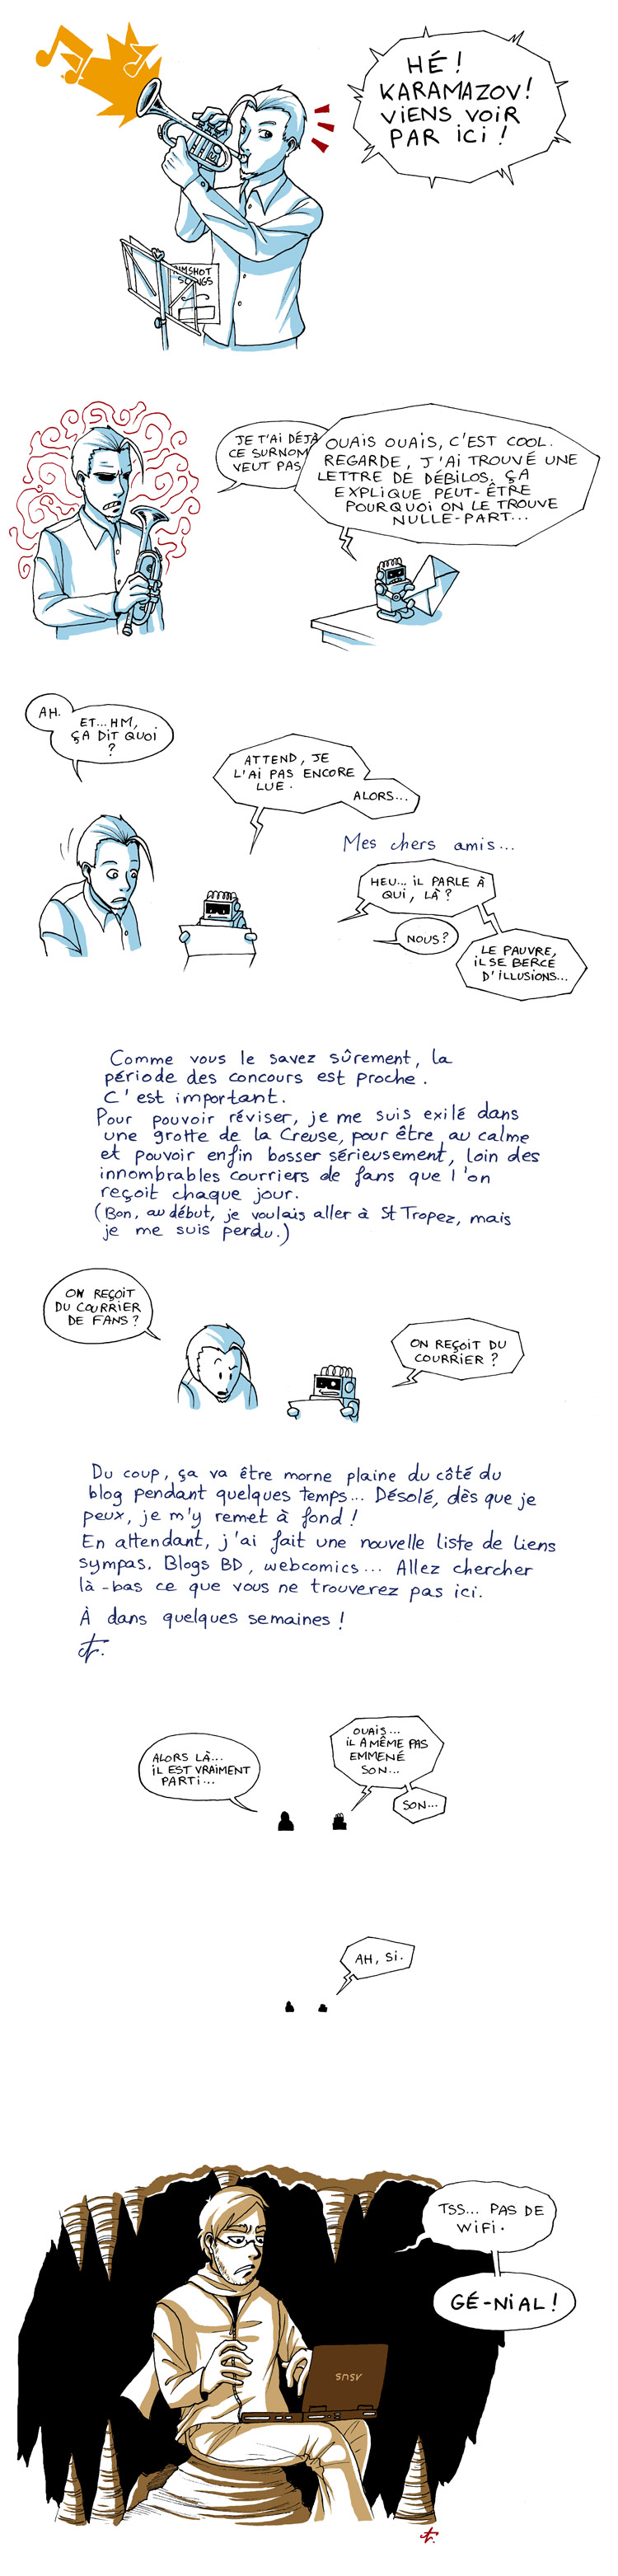 HÉ!
KARAMAZOV!
VIENS VOIR
PAR ICI!
SONGS
JE T'AI DÉJÀ
CE SURNOM
VEUT PAS
OUAIS OUAIS, C'EST COOL.
REGARDE, J'AI TROUVÉ UNE
LETTRE DE DÉBILOS. ÇA
EXPLIQUE PEUT-ÊTRE
POURQUOI ON LE TROUVE
NULLE-PART...
AH.
ET... HM,
ÇA DIT QUOI
?
ATTEND, JE
L'AI PAS ENCORE
LUE.
ALORS...
Mes chers amis...
HEU... IL PARLE À
QUI, LÀ?
NOUS?
LE PAUVRE,
IL SE BERCE
D'ILLUSIONS...
Comme vous le savez sûrement, la
période des concours est proche.
C'est important.
Pour pouvoir réviser, je me suis exilé dans
une grotte de la Creuse, pour être au calme
et pouvoir enfin bosser sérieusement, loin des
innombrables courriers de fans que l'on
reçoit chaque jour.
(Bon, au début, je voulais aller à St Tropez, mais
je me suis perdu.)
ON REÇOIT
DU COURRIER
DE FANS?
ON REÇOIT DU
COURRIER?
Du coup, ça va être morne plaine du côté du
blog pendant quelques temps... Désolé, dès que je
peux, je m'y remet à fond!
En attendant, j'ai fait une nouvelle liste de liens
sympas. Blogs BD, webcomics... Allez chercher
là-bas ce que vous ne trouverez pas ici.
À dans quelques semaines!
ALORS LÀ...
IL EST VRAIMENT
PARTI...
OUAIS...
IL A MÊME PAS
EMMENÉ
SON...
SON...
AH, SI.
TSS... PAS DE
WIFI.
GÉ-NIAL!
ASUS